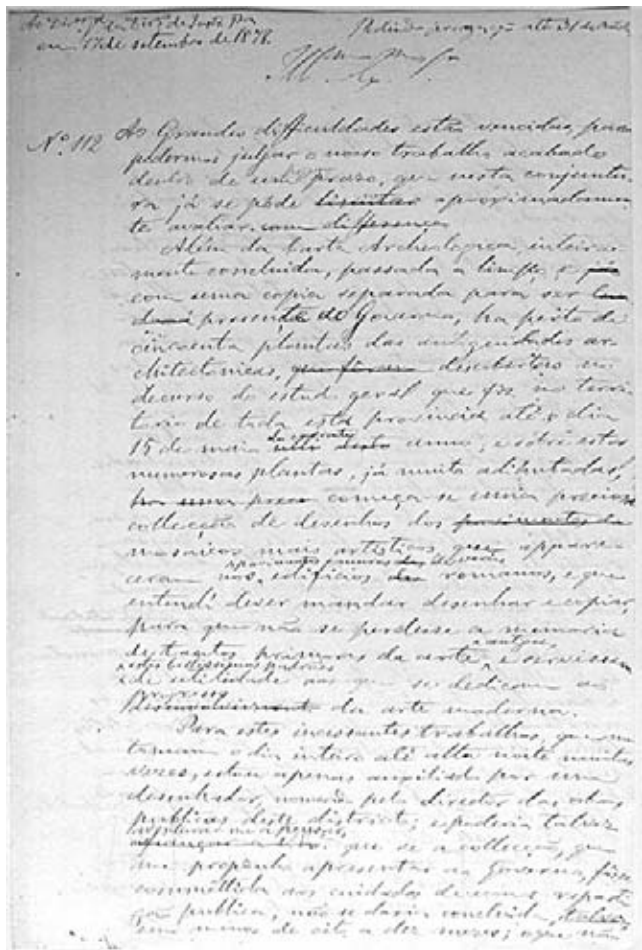 em 17 de setembro de 1878.
Nº 112 As Grandes difficuldades estão vencidas, para
podermos julgar o nosso trabalho acabado
dentro de um prazo, que nesta conjunctu-
ra já se póde limitar aproximadamen-
te avaliar com differença
Além da Carta Archeologica inteira-
mente concluida, passada a limpo, e já
com uma copia separada para ser
presente ao Governo, ha perto de
cincoenta plantas das antiguidades ar-
chitectonicas, que foram descobertas no
decurso do estudo geral que fiz no terri-
torio de toda esta provincia até o dia
15 de maio do corrente anno; e sobre estas
numerosas plantas, já muito adiantadas,
ha uma começa-se uma preciosa
collecção de desenhos dos pavimentos de
mosaicos mais artisticos que appare-
ceram nos edificios romanos, e que
entendi dever mandar desenhar e copiar,
para que não se perdesse a memoria
de tantos primores da arte antiga, e servissem
estes bellissimos padrões
de utilidade aos que se dedicam ao
progresso
Desenvolvimento da arte moderna.
Para estes incessantes trabalhos, que me
tomam o dia inteiro até alta noite muitas
vezes, estou apenas auxiliado por um
desenhador, nomeado pelo director das obras
publicas deste districto; e poderia talvez
que se a collecção, que
me proponho apresentar ao Governo, fosse
commettida aos cuidados de uma reparti-
ção publica, não se daria concluida, talvez
em menos de oito a dez mezes; o que não